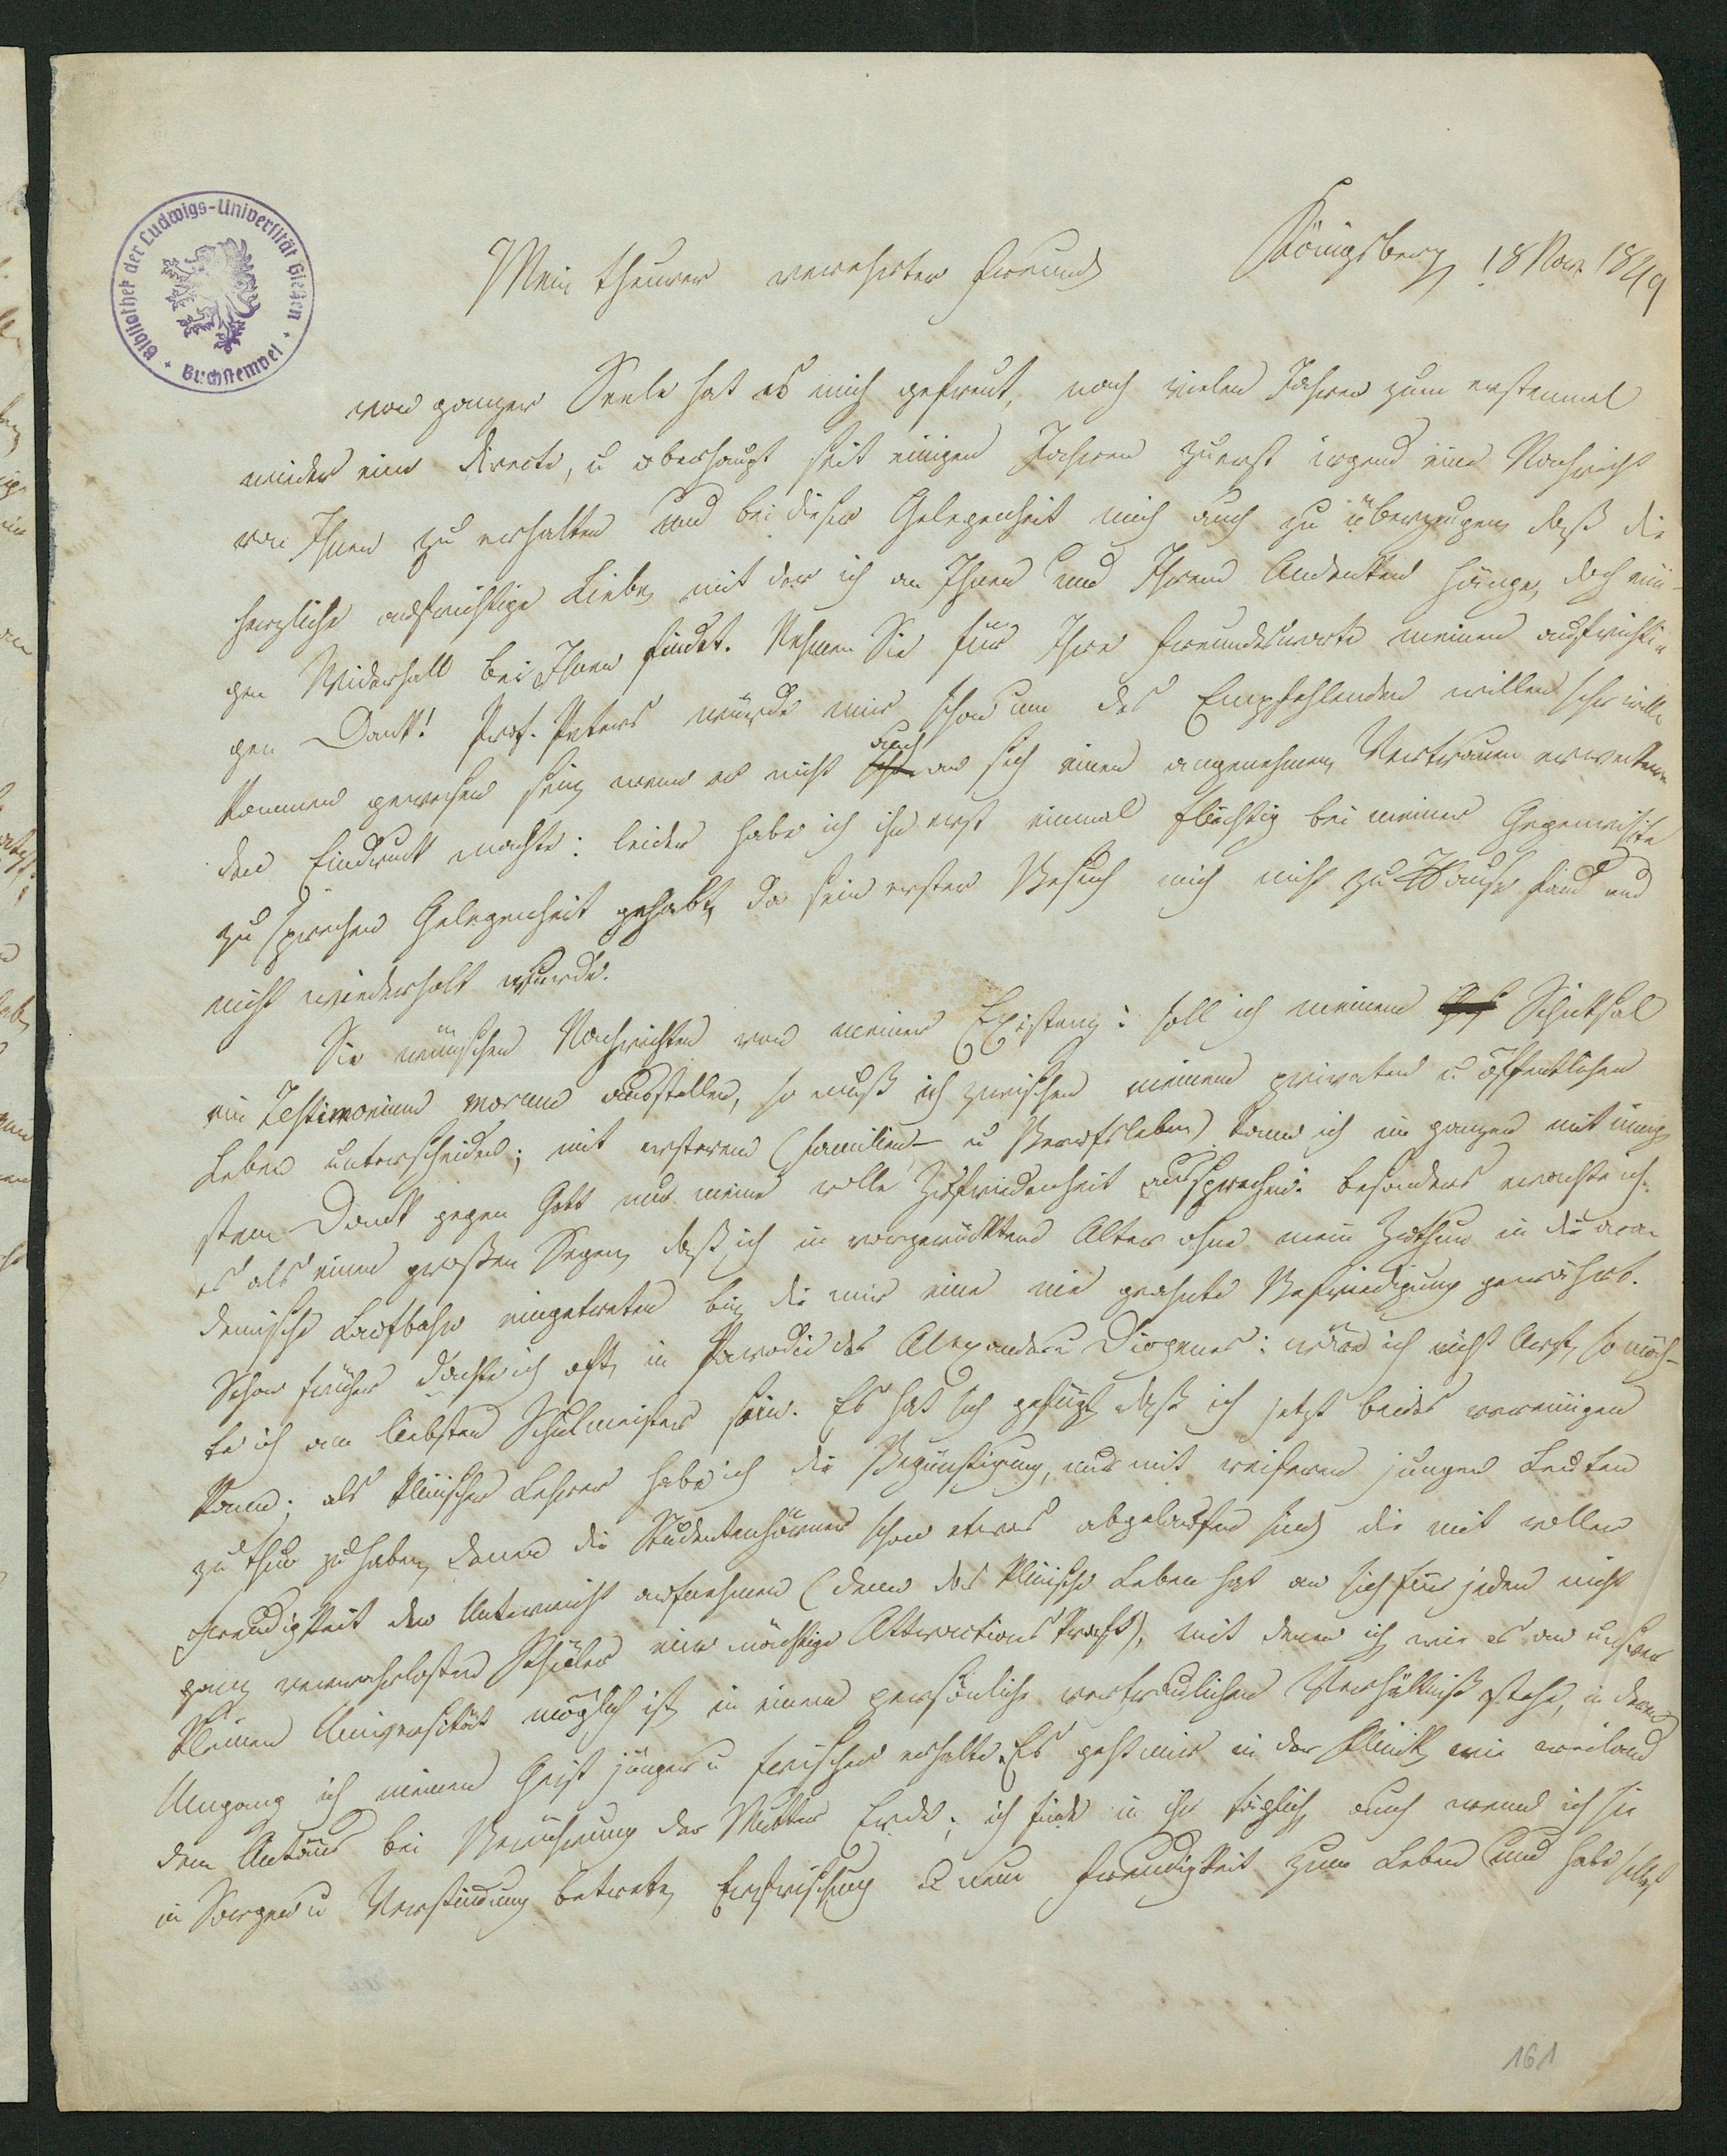 Bibliothek der Ludwigs-Universität Gießen
Buchstempel
Königsberg 18 Nov. 1849
Mein theurer verehrter Freund
von ganzer Seele hat es mich gefreut, nach vielen Jahren zum erstenmal
wieder eine directe, u überhaupt seit einigen Jahren zuerst irgend eine Nachricht
von Ihnen zu erhalten und bei dieser Gelegenheit mich auch zu überzeugen, daß die
herzliche aufrichtige Liebe, mit der ich an Ihnen und Ihrem Andenken hänge, doch eini-
gen Widerhall bei Ihnen findet. Nehmen Sie für Ihre Freundesworte meinen aufrichti-
gen Dank! Prof. Peters würde mir schon um des Empfehlenden willen sehr will-
kommen gewesen sein, wenn er nicht auch an sich einen angenehmen, Vertrauen erwecken-
den Eindruck machte: leider habe ich ihn erst einmal flüchtig bei meiner Gegenvisite
zu sprechen Gelegenheit gehabt, da sein erster Besuch mich nicht zu Hause fand und
nicht wiederholt wurde.
Sie wünschen Nachrichten von meiner Existenz: soll ich meinem Schicksal
ein Testimonium morum ausstellen, so muß ich zwischen meinem privaten u öffentlichen
Leben unterscheiden; mit ersterem (Familien- u Berufsleben) kann ich im ganzen mit innig-
stem Dank gegen Gott nur meine volle Zufriedenheit aussprechen: besonders erachte ich
es als einen großen Segen, daß ich in vorgerücktem Alter ohne mein Zuthun in die aca-
demische Laufbahn eingetreten bin, die mir eine nie geahnte Befriedigung gewährt.
Schon früher dachte ich oft, in Parodie des Alexander u Diogenes: wäre ich nicht Arzt, so möch-
te ich am liebsten Schulmeister sein. Es hat sich gefügt, daß ich jetzt beides vereinigen
kann; als klinischer Lehrer habe ich die Begünstigung, nur mit reiferen jungen Leuten
zu thun zu haben, denen die Studentenhörner schon etwas abgelaufen sind, die mit voller
Freudigkeit den Unterricht aufnehmen (denn das klinische Leben hat an sich für jeden nicht
ganz verwahrlosten Schüler eine mächtige Attractionskraft), mit denen ich, wie es an unserer
kleinen Universität möglich ist, in einem persönlich vertraulichen Verhältniß stehe, in deren
Umgang ich meinen Geist jünger u frischer erhalte. Es geht mir in der Klinik, wie weiland
dem Antäus bei Berührung der Mutter Erde; ich finde in ihr täglich, auch wenn ich sie
in Sorgen u Verstimmung betrete, Erfrischung u neue Freudigkeit zum Leben und habe selbst
161